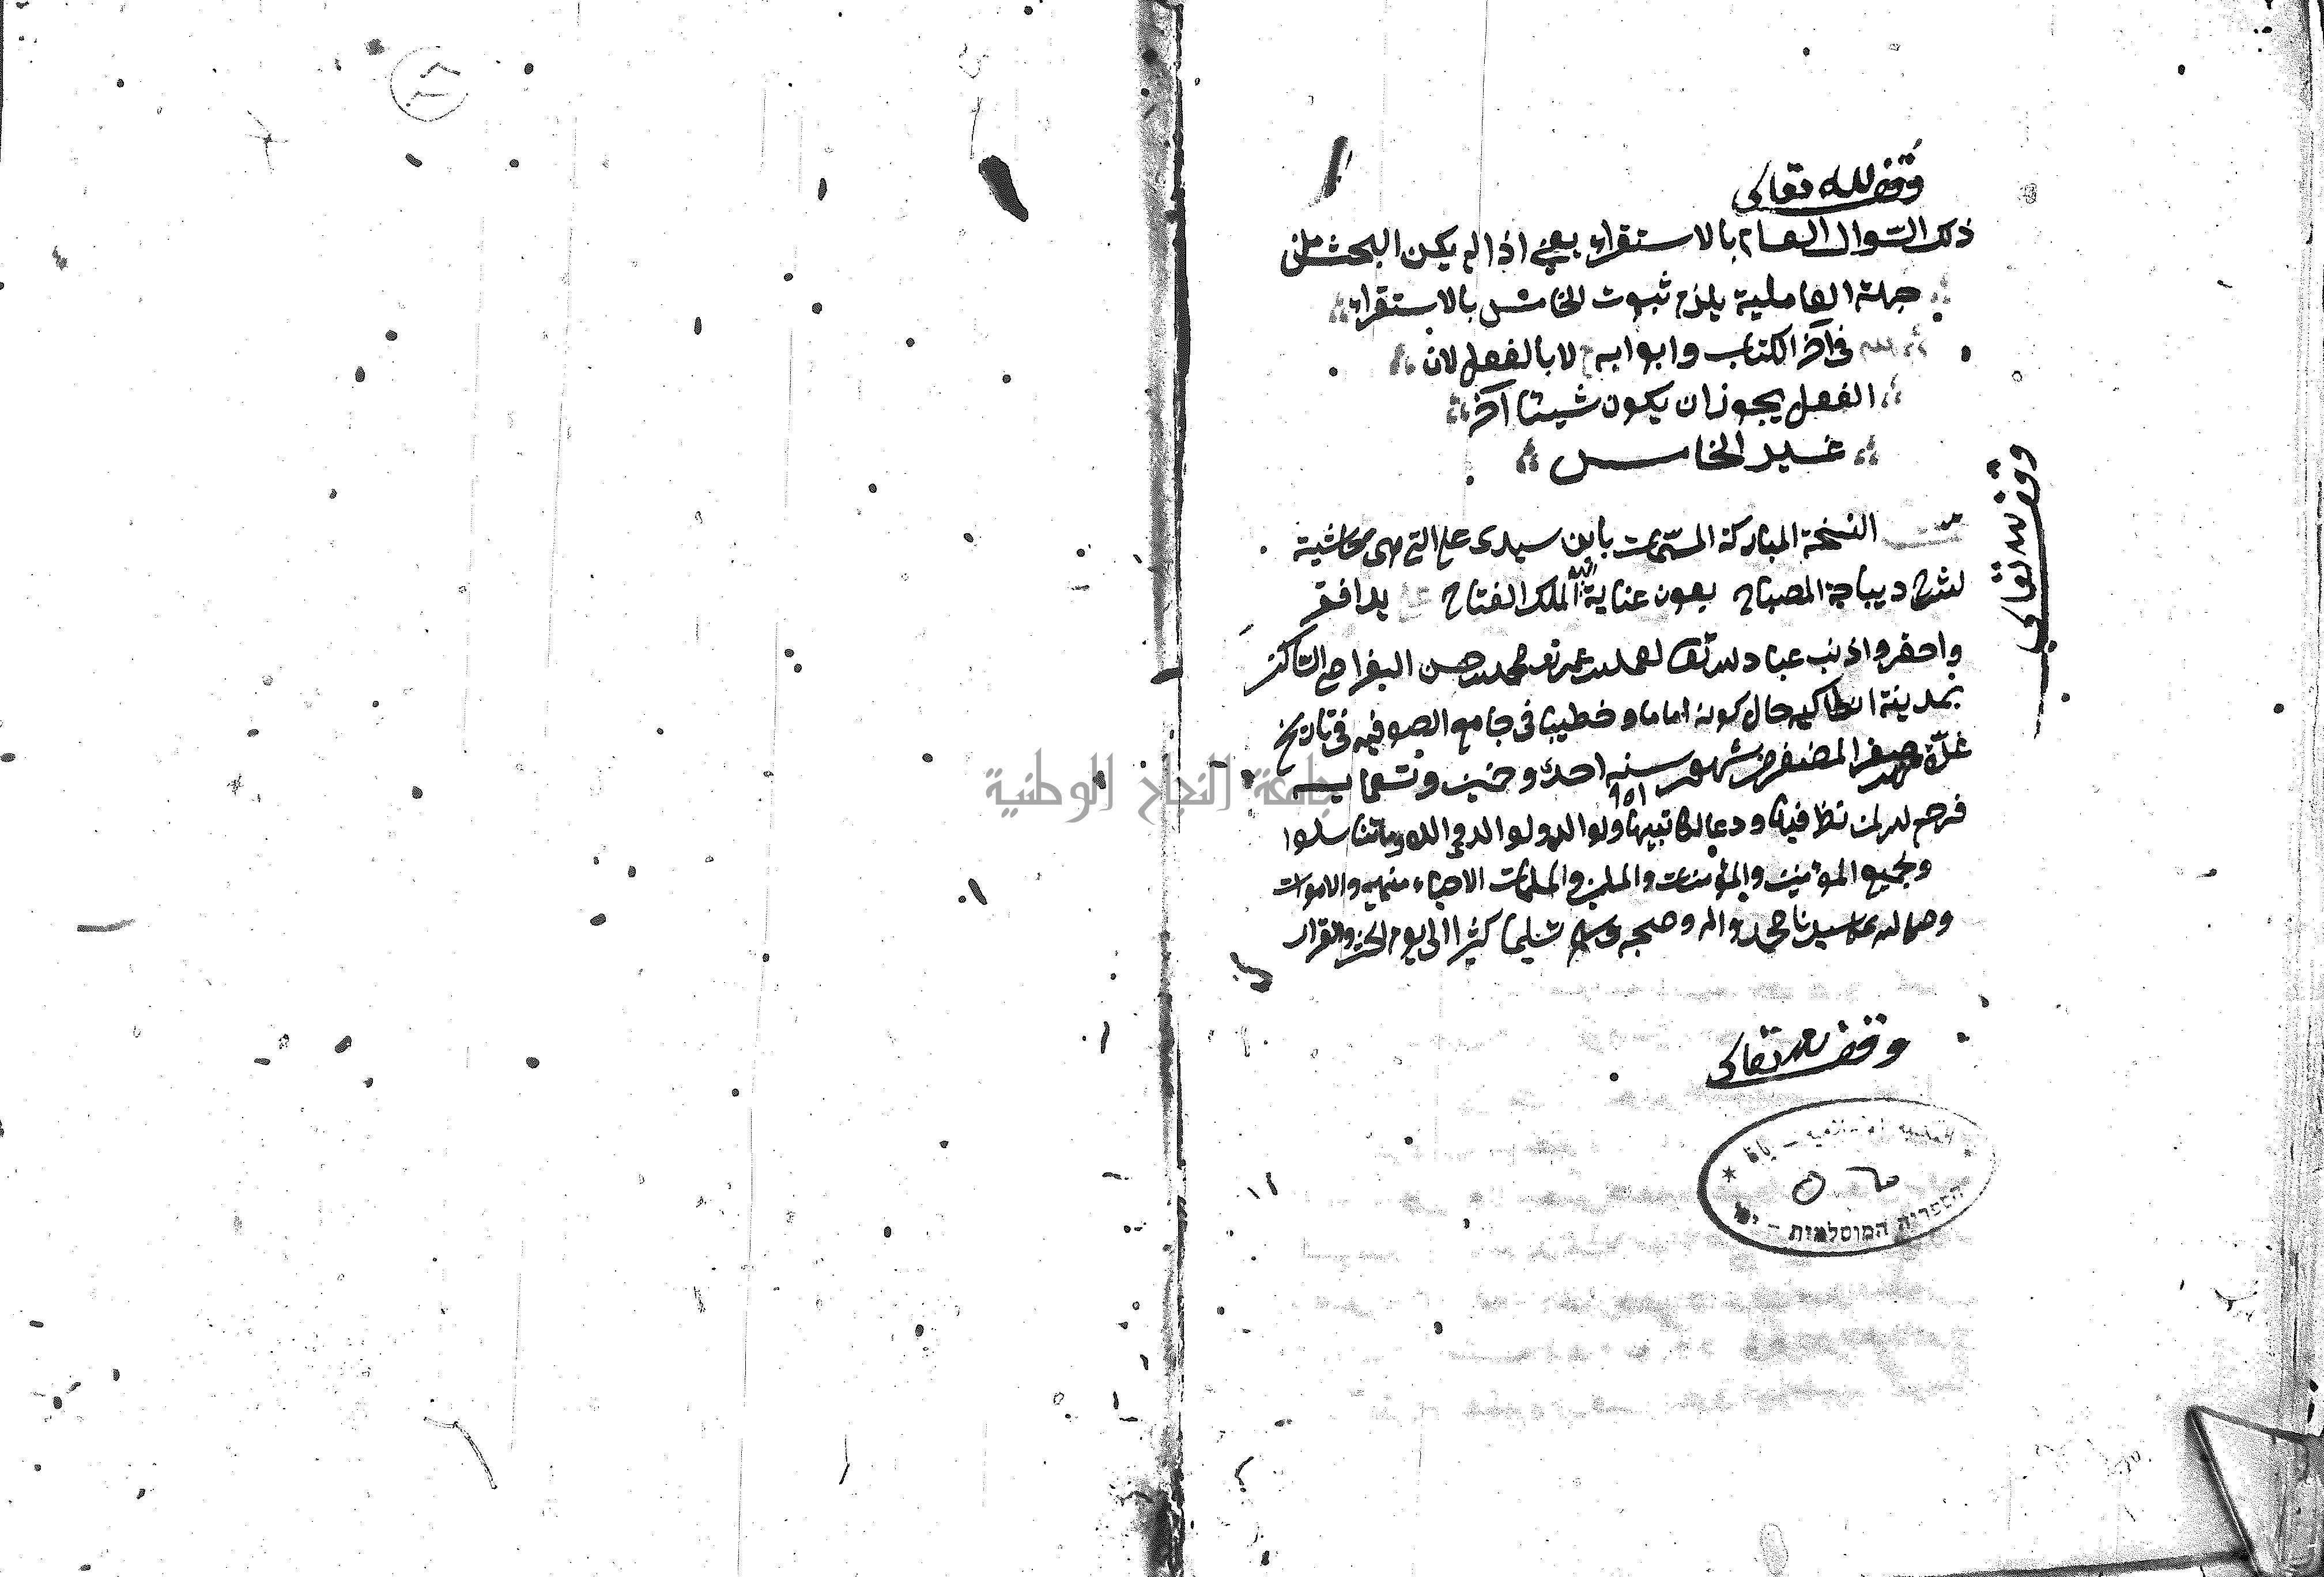 وقف لله تعالى
ذلك السّوال العام بالاستقراء يعني اذا لم يكن البحث من
جهة العاملية يلزم ثبوت الخامس بالاستقراء
في آخر الكتاب وابوابه لا بالفعل لان
الفعل يجوز ان يكون شيئا آخر
غير الخامس
تمت النسخة المباركة المسمّات بابن سيدى على التي هى حاشية
لشرح ديباجة المصباح بعون عناية الله الملك الفتاح يد افقر
واحقر واذنب عباد الله تعالى محمد بن حسن الساكن
بمدينة انطاكيه حال كونه اماما وخطيبا في جامع الصوفيه في تاريخ
غرّة صفر المضفر من شهور سنه احدى وخمسين وتسعمايه
٩٥١
فرحم الله لمن نظر فيها ودعا لكاتبيها ولوالديه ولوالدي والديه وما تناسلوا
ولجميع المؤمنين والمؤمنات والمسلمين والمسلمات الاحياء منهم والاموات
وصلى الله على سيدنا محمد واله وصحبه وسلم تسليما كثيرا الى يوم الحشر والقرار
وقف لله تعالى
وقف لله تعالى
المكتبة الاسلامية – يافا
הספריה המוסלמית – יפו
جامعة النجاح الوطنية